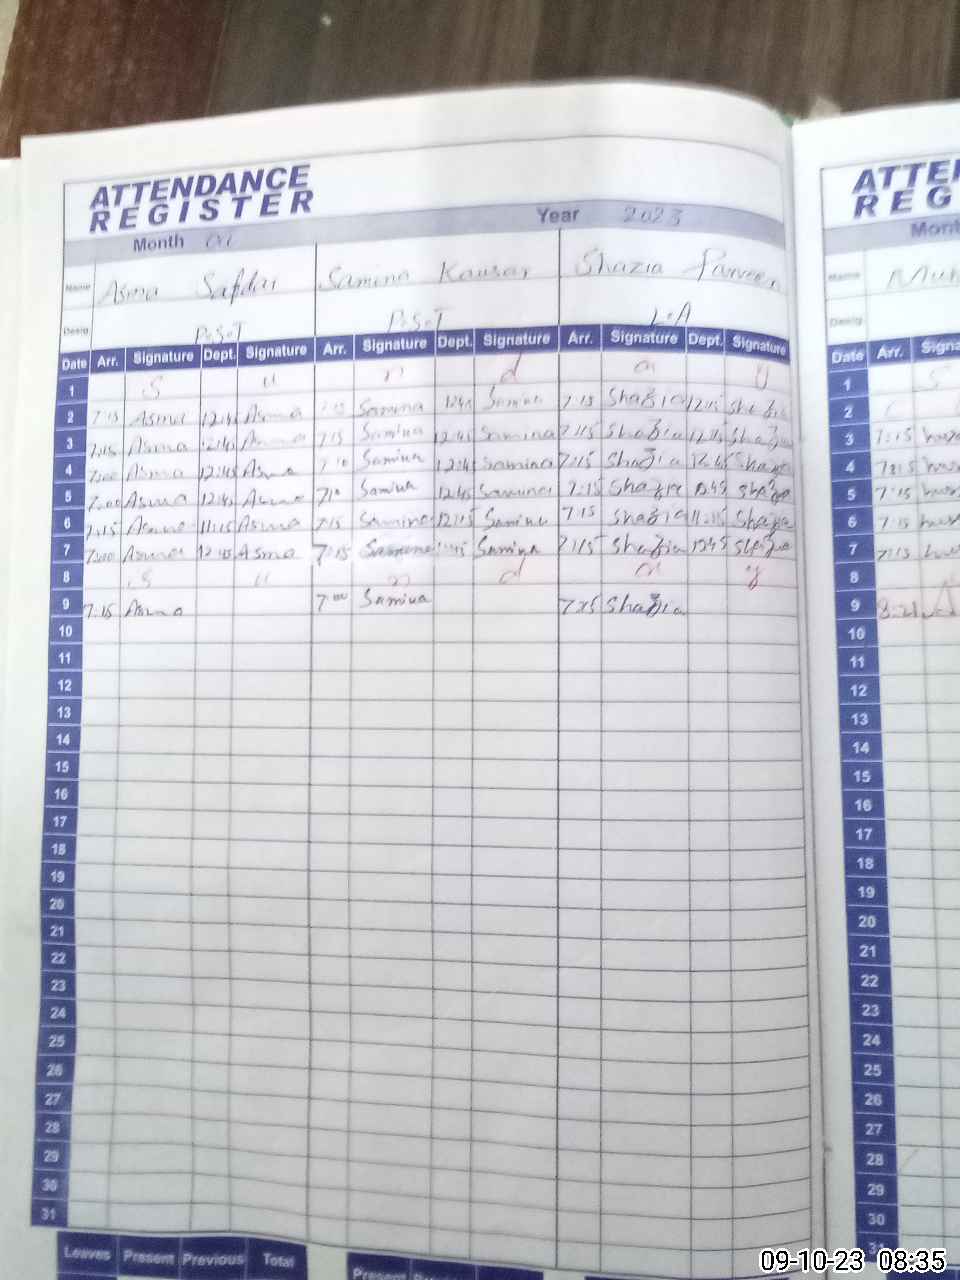 ATTENDANCE
REGISTER
Month Year 2023
Name Asma Safdar Samina Kausar Shazia Parveen
Desig. P.S.T P.S.T L.A
Date Arr. Signature Dept. Signature Arr. Signature Dept. Signature Arr. Signature Dept. Signature
1 S u n d a y
2 7:15 Asma 12:45 Asma 7:15 Samina 12:45 Samina 7:15 Shazia 12:45 Shazia
3 7:15 Asma 12:45 Asma 7:15 Samina 12:45 Samina 7:15 Shazia 12:45 Shazia
4 7:00 Asma 12:45 Asma 7:10 Samina 12:45 Samina 7:15 Shazia 12:45 Shazia
5 7:00 Asma 12:45 Asma 7:10 Samina 12:45 Samina 7:15 Shazia 12:45 Shazia
6 7:15 Asma 11:15 Asma 7:15 Samina Samina 7:15 Shazia 11:15 Shazia
7 7:00 Asma 12:45 Asma 7:15 Samina Samina 7:15 Shazia 12:45 Shazia
8 S u n d a y
9 7:15 Asma 7:00 Samina Shazia
10
11
12
13
14
15
16
17
18
19
20
21
22
23
24
25
26
27
28
29
30
31
Leaves Present Previous Total
Present
ATTE
REG
Mont
Name Muh
Desig.
Date Arr. Signa
1 S
2
3 7:15
4
5 7:15
6 7:15
7 7:15
8
9 8:21
10
11
12
13
14
15
16
17
18
19
20
21
22
23
24
25
26
27
28
29
30
31
09-10-23 08:35